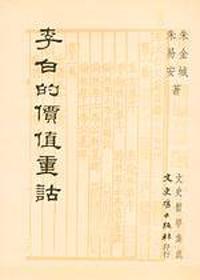 朱金城
朱易安 著
李白的價值重詁
文史哲學集成
文史哲出版社印行